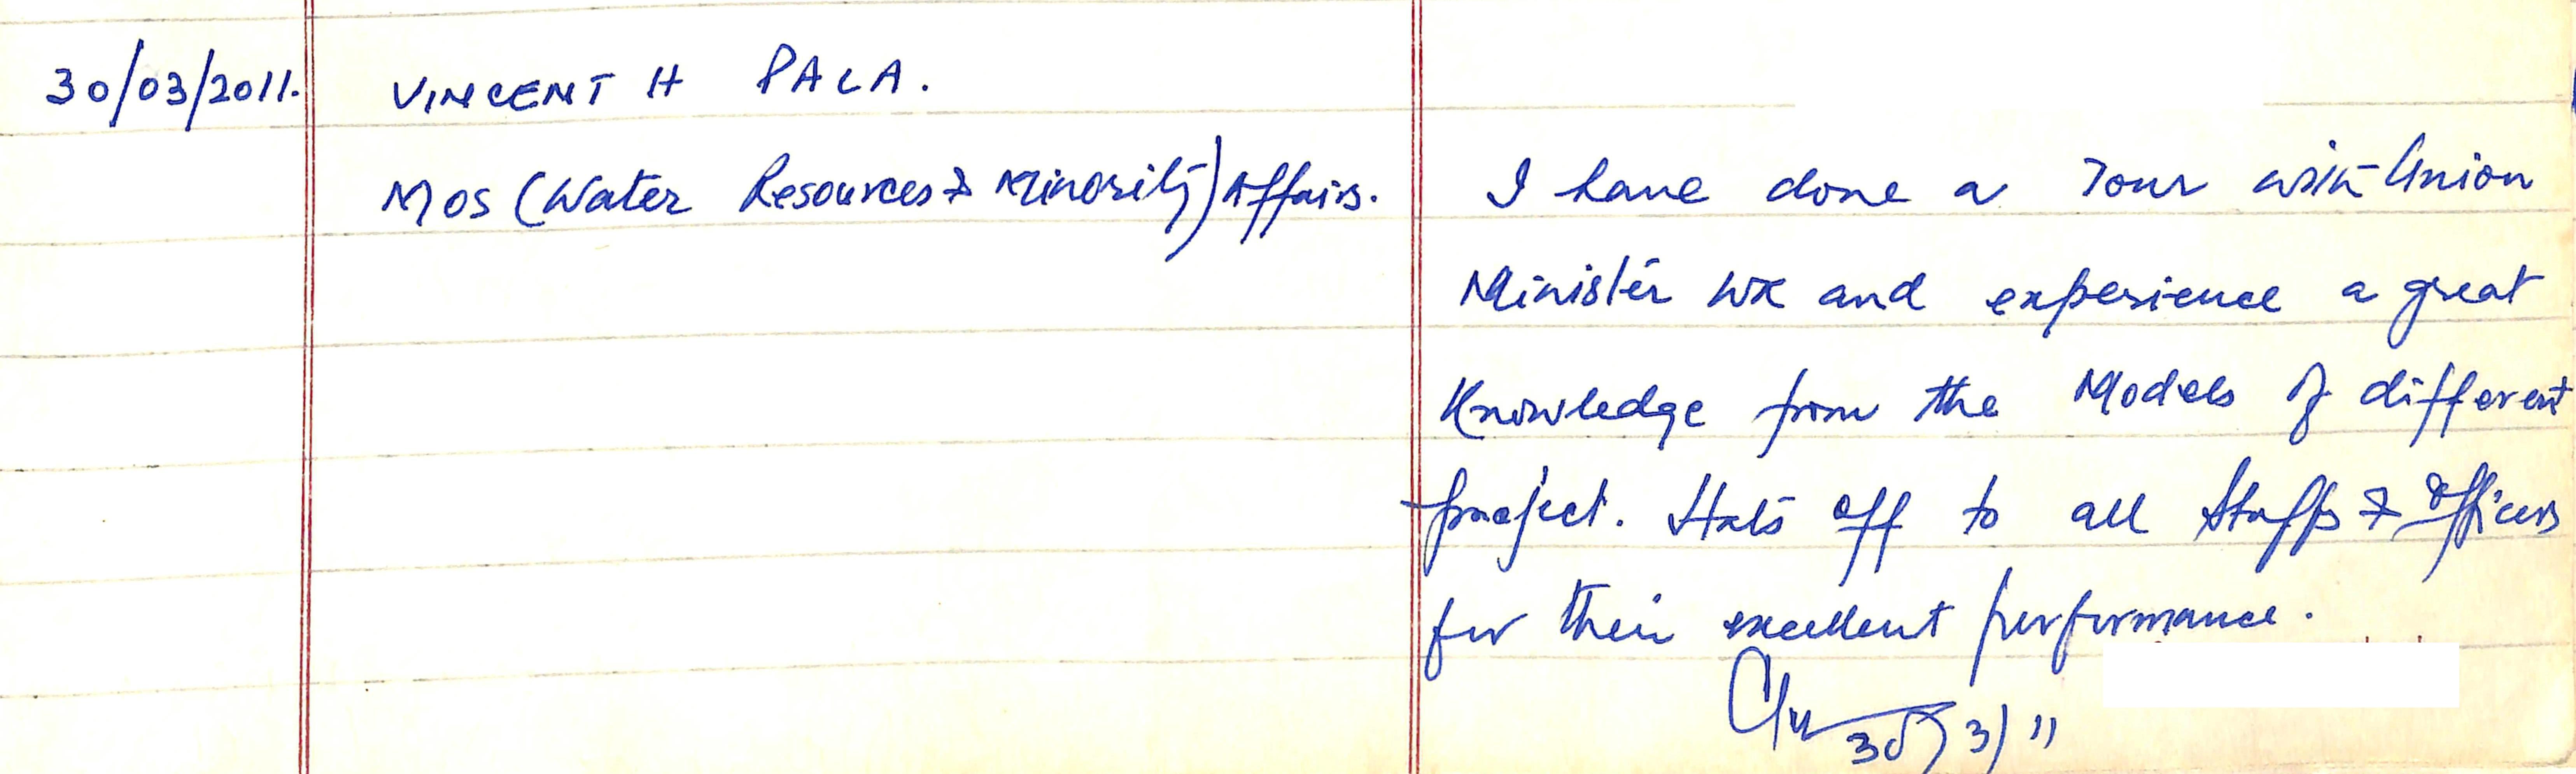 30/03/2011. VINCENT H PALA.
MOS (Water Resources & Minority) Affairs.
I have done a Tour with Union
Minister WR and experience a great
Knowledge from the Models of different
project. Hats off to all Staffs & Officers
for their excellent performance.
30/3/11